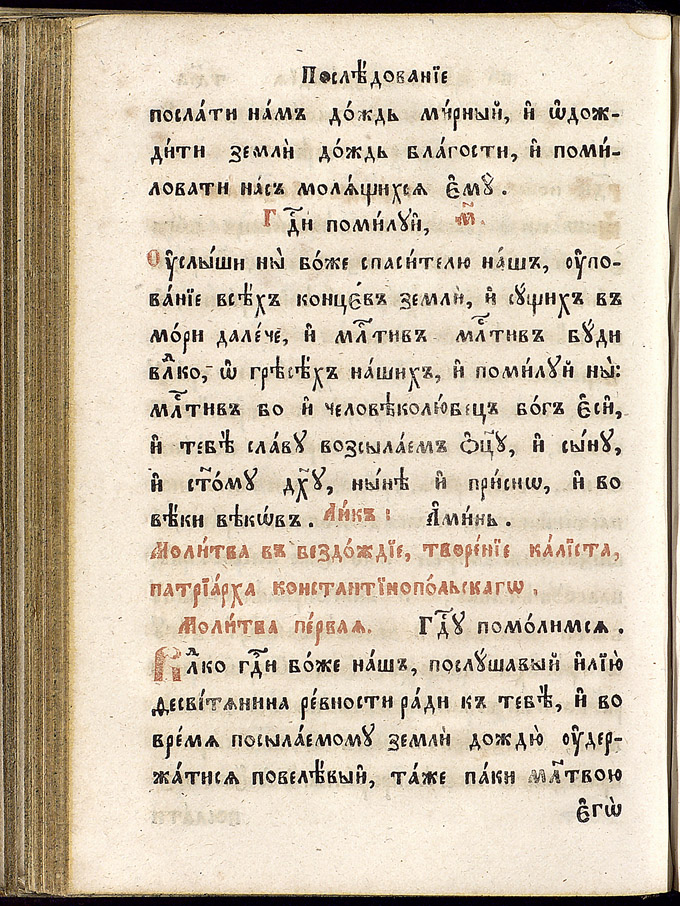 Послѣ́дованїе
посла́ти на́мъ до́ждь ми́рный, и҆ ѡ҆дож-
ди́ти землѝ до́ждь бла́гости, и҆ поми́-
ловати на́съ молѧ́щихсѧ є҆мꙋ̀.
Гдⷭ҇и поми́лꙋй, м҃.
Оу҆слы́ши ны̀ бо́же спаси́телю на́шъ, оу҆по-
ва́нїе всѣ́хъ конце́въ землѝ, и҆ сꙋ́щихъ въ
мо́ри дале́че, и҆ млⷭ҇тивъ млⷭ҇тивъ бꙋ́ди
влⷣко, ѡ҆ грѣсѣ́хъ на́шихъ, и҆ поми́лꙋй ны̀:
млⷭ҇тивъ бо и҆ человѣколю́бецъ бо́гъ є҆сѝ,
и҆ тебѣ̀ сла́вꙋ возсыла́емъ ѻ҆ц҃ꙋ̀, и҆ сы́нꙋ,
и҆ ст҃о́мꙋ дх҃ꙋ, ны́нѣ и҆ при́снѡ, и҆ во
вѣ́ки вѣкѡ́въ. Ли́къ: А҆ми́нь.
Моли́тва въ бездо́ждїе, творе́нїе ка́лїста,
патрїа́рха константїнопо́льскагѡ.
Моли́тва пе́рваѧ. Гдⷭ҇ꙋ помо́лимсѧ.
Влⷣко гдⷭ҇и бо́же на́шъ, послꙋ́шавый и҆лїю̀
ѳесві́тѧнина ре́вности ра́ди къ тебѣ̀, и҆ во
вре́мѧ посыла́емомꙋ землѝ дождю̀ оу҆дер-
жа́тисѧ повелѣ́вый, та́же па́ки млⷭ҇твою
є҆гѡ̀